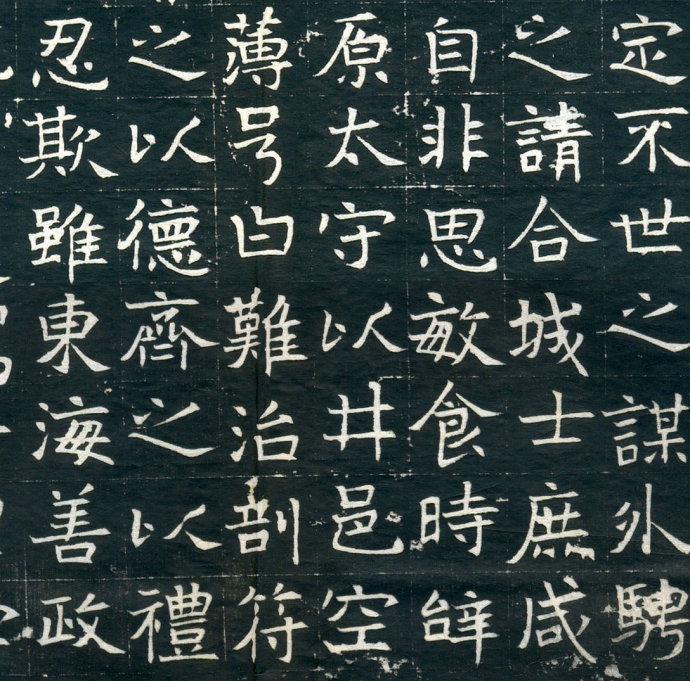 定不世之謀外騁
之請合城士庶咸
自非思敏食時辞
原太守以井邑空
薄号曰難治剖符
之以德齊之以禮
忍欺雖東海善政